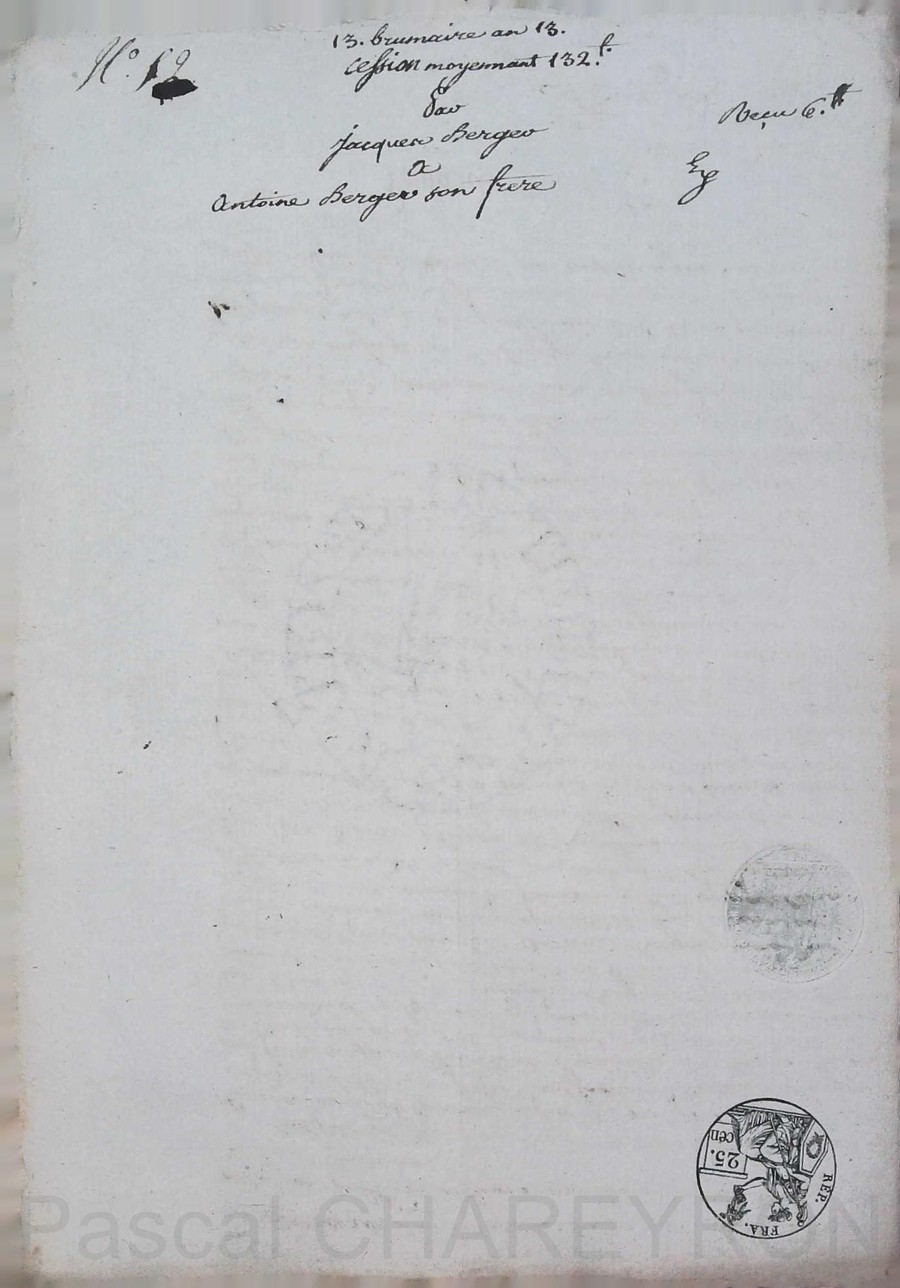 N.o 12
13. brumaire an 13.
cession moyennant 132.f
Par
Jacques Berger
a
Antoine Berger son frere
Reçu 6.tt
REP. FRA.
25. cen
Pascal CHAREYRON